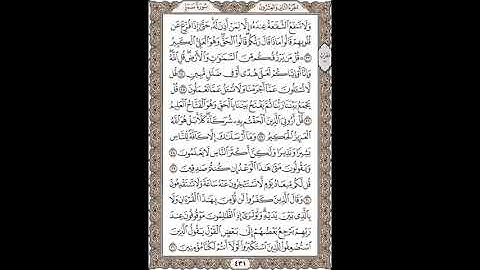 الجزء الثاني والعشرون
سورة سبأ
وَلَا تَنفَعُ ٱلشَّفَٰعَةُ عِندَهُۥٓ إِلَّا لِمَنْ أَذِنَ لَهُۥ حَتَّىٰٓ إِذَا فُزِّعَ عَن
قُلُوبِهِمْ قَالُوا۟ مَاذَا قَالَ رَبُّكُمْ قَالُوا۟ ٱلْحَقَّ وَهُوَ ٱلْعَلِىُّ ٱلْكَبِيرُ
۝٢٣ قُلْ مَن يَرْزُقُكُم مِّنَ ٱلسَّمَٰوَٰتِ وَٱلْأَرْضِ قُلِ ٱللَّهُ
وَإِنَّآ أَوْ إِيَّاكُمْ لَعَلَىٰ هُدًى أَوْ فِى ضَلَٰلٍ مُّبِينٍ ۝٢٤ قُل
لَّا تُسْـَٔلُونَ عَمَّآ أَجْرَمْنَا وَلَا نُسْـَٔلُ عَمَّا تَعْمَلُونَ ۝٢٥ قُلْ
يَجْمَعُ بَيْنَنَا رَبُّنَا ثُمَّ يَفْتَحُ بَيْنَنَا بِٱلْحَقِّ وَهُوَ ٱلْفَتَّاحُ ٱلْعَلِيمُ
۝٢٦ قُلْ أَرُونِىَ ٱلَّذِينَ أَلْحَقْتُم بِهِۦ شُرَكَآءَ كَلَّا بَلْ هُوَ ٱللَّهُ
ٱلْعَزِيزُ ٱلْحَكِيمُ ۝٢٧ وَمَآ أَرْسَلْنَٰكَ إِلَّا كَآفَّةً لِّلنَّاسِ
بَشِيرًا وَنَذِيرًا وَلَٰكِنَّ أَكْثَرَ ٱلنَّاسِ لَا يَعْلَمُونَ ۝٢٨
وَيَقُولُونَ مَتَىٰ هَٰذَا ٱلْوَعْدُ إِن كُنتُمْ صَٰدِقِينَ ۝٢٩
قُل لَّكُم مِّيعَادُ يَوْمٍ لَّا تَسْتَـْٔخِرُونَ عَنْهُ سَاعَةً وَلَا تَسْتَقْدِمُونَ
۝٣٠ وَقَالَ ٱلَّذِينَ كَفَرُوا۟ لَن نُّؤْمِنَ بِهَٰذَا ٱلْقُرْءَانِ وَلَا
بِٱلَّذِى بَيْنَ يَدَيْهِ وَلَوْ تَرَىٰٓ إِذِ ٱلظَّٰلِمُونَ مَوْقُوفُونَ عِندَ
رَبِّهِمْ يَرْجِعُ بَعْضُهُمْ إِلَىٰ بَعْضٍ ٱلْقَوْلَ يَقُولُ ٱلَّذِينَ
ٱسْتُضْعِفُوا۟ لِلَّذِينَ ٱسْتَكْبَرُوا۟ لَوْلَآ أَنتُمْ لَكُنَّا مُؤْمِنِينَ ۝٣١
٤٣١